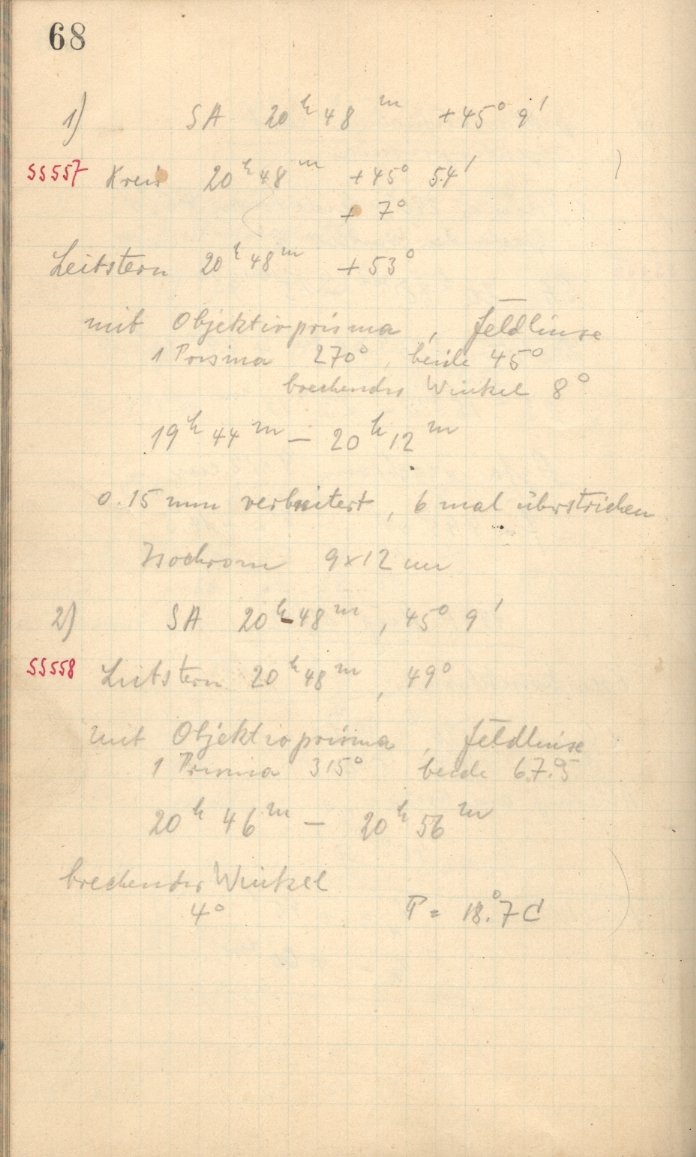 68
1) SA 20h 48m +45° 9'
SS557 Kreis 20h 48m +45° 54'
+ 7°
Leitstern 20h 48m +53°
mit Objektivprisma, Feldlinse
1 Prisma 270°, beide 45°
brechender Winkel 8°
19h 44m – 20h 12m
0.15 mm verbreitert, 6 mal überstrichen
Isochrom 9x12 cm
2) SA 20h 48m, 45° 9'
SS558 Leitstern 20h 48m, 49°
mit Objektivprisma, Feldlinse
1 Prisma 315° beide 67.°5
20h 46m – 20h 56m
brechender Winkel
4° T = 18.°7 C